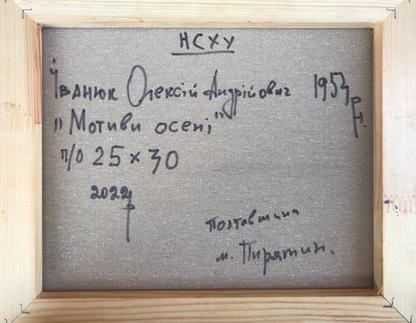 НСХУ
Їванюк Олексій Андрійович 1953 р.н.
"Мотиви осені"
п/о 25 × 30
2022 р
Полтавщина
м. Пирятин.